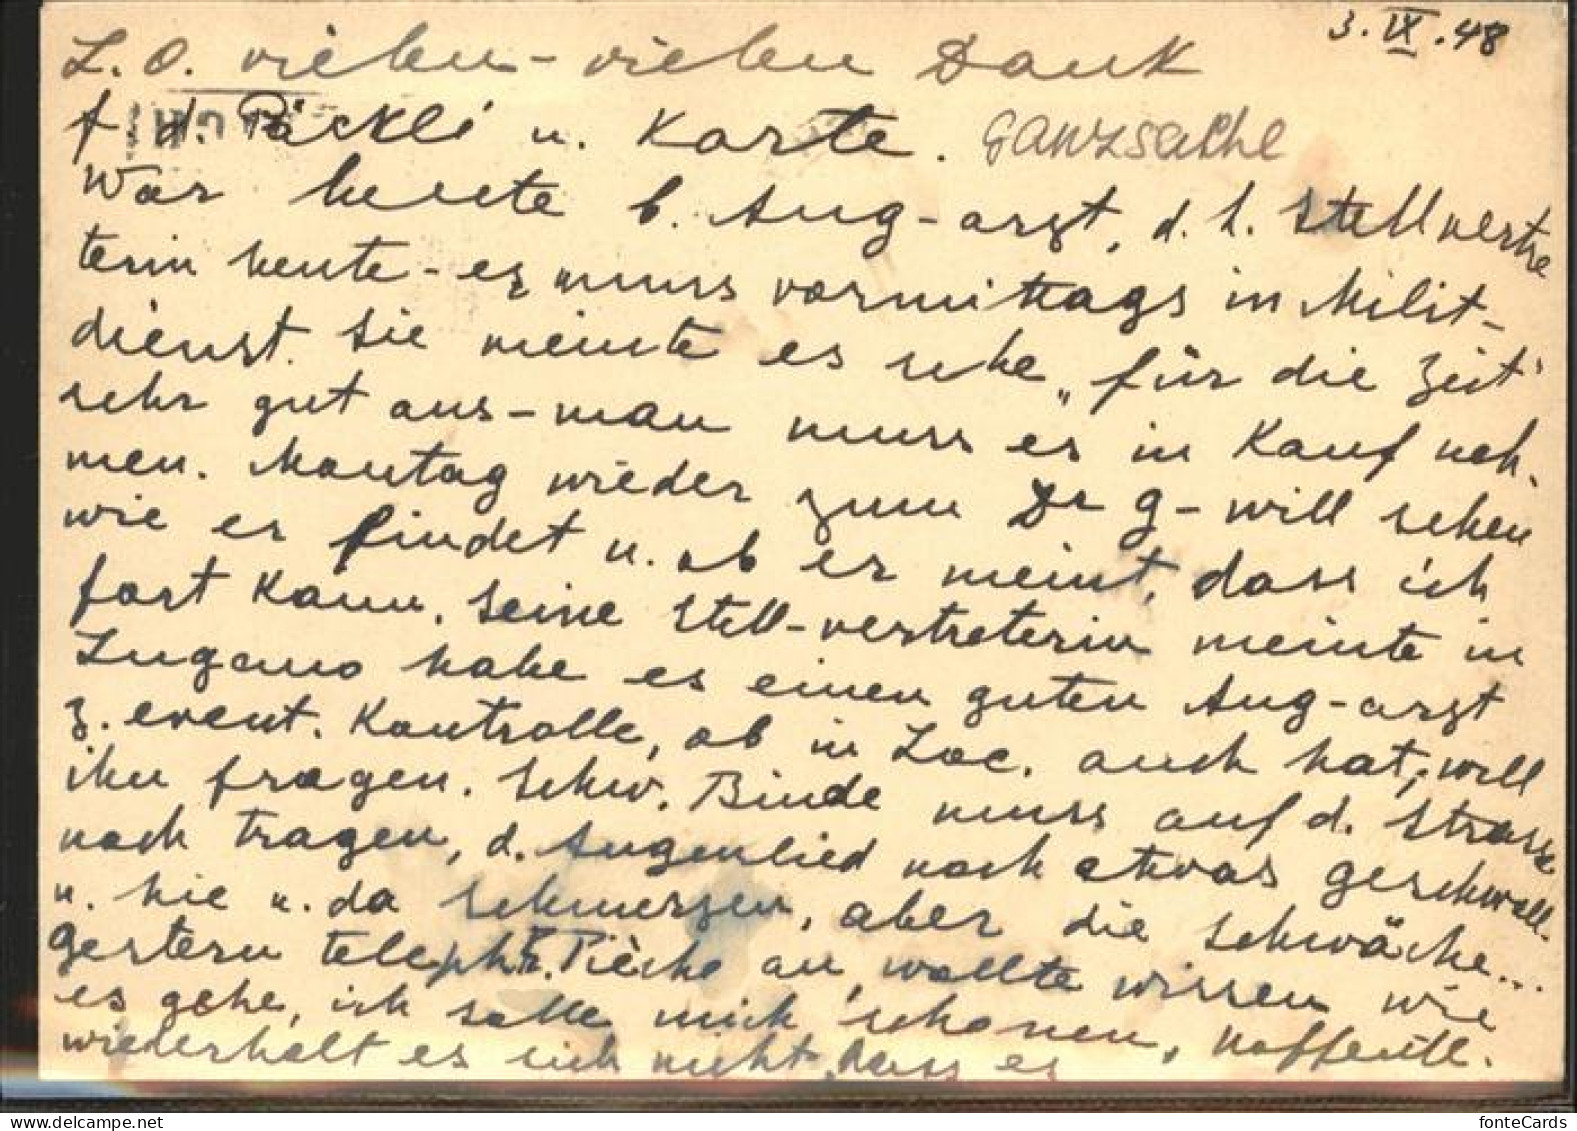 3. IX. 48
L. O. vielen - vielen Dank
f. d. Päckli u. Karte. Ganzsache
War heute b. Aug-arzt, d. h. Stellvertre
terin heute - er muss vormittags in Milit-
dienst. Sie meinte es sehe „für die Zeit"
sehr gut aus - man muss es in Kauf neh-
men. Montag wieder zum Dr G - will sehen
wie er findet u. ob er meint, dass ich
fort kann. Seine Stell-vertreterin meinte in
Lugano habe es einen guten Aug-arzt
z. event. Kontrolle, ob in Loc. auch hat, will
ihn fragen. Schw. Binde muss auf d. Strasse
noch tragen, d. Augenlied noch etwas geschwoll.
u. hie u. da Schmerzen, aber die Schwäche...
Gestern teleph. Pièche an, wollte wissen wie
es gehe, ich solle mich schonen, hoffentl.
wiederholt es sich nicht, dass es
www.delcampe.net
fonteCards